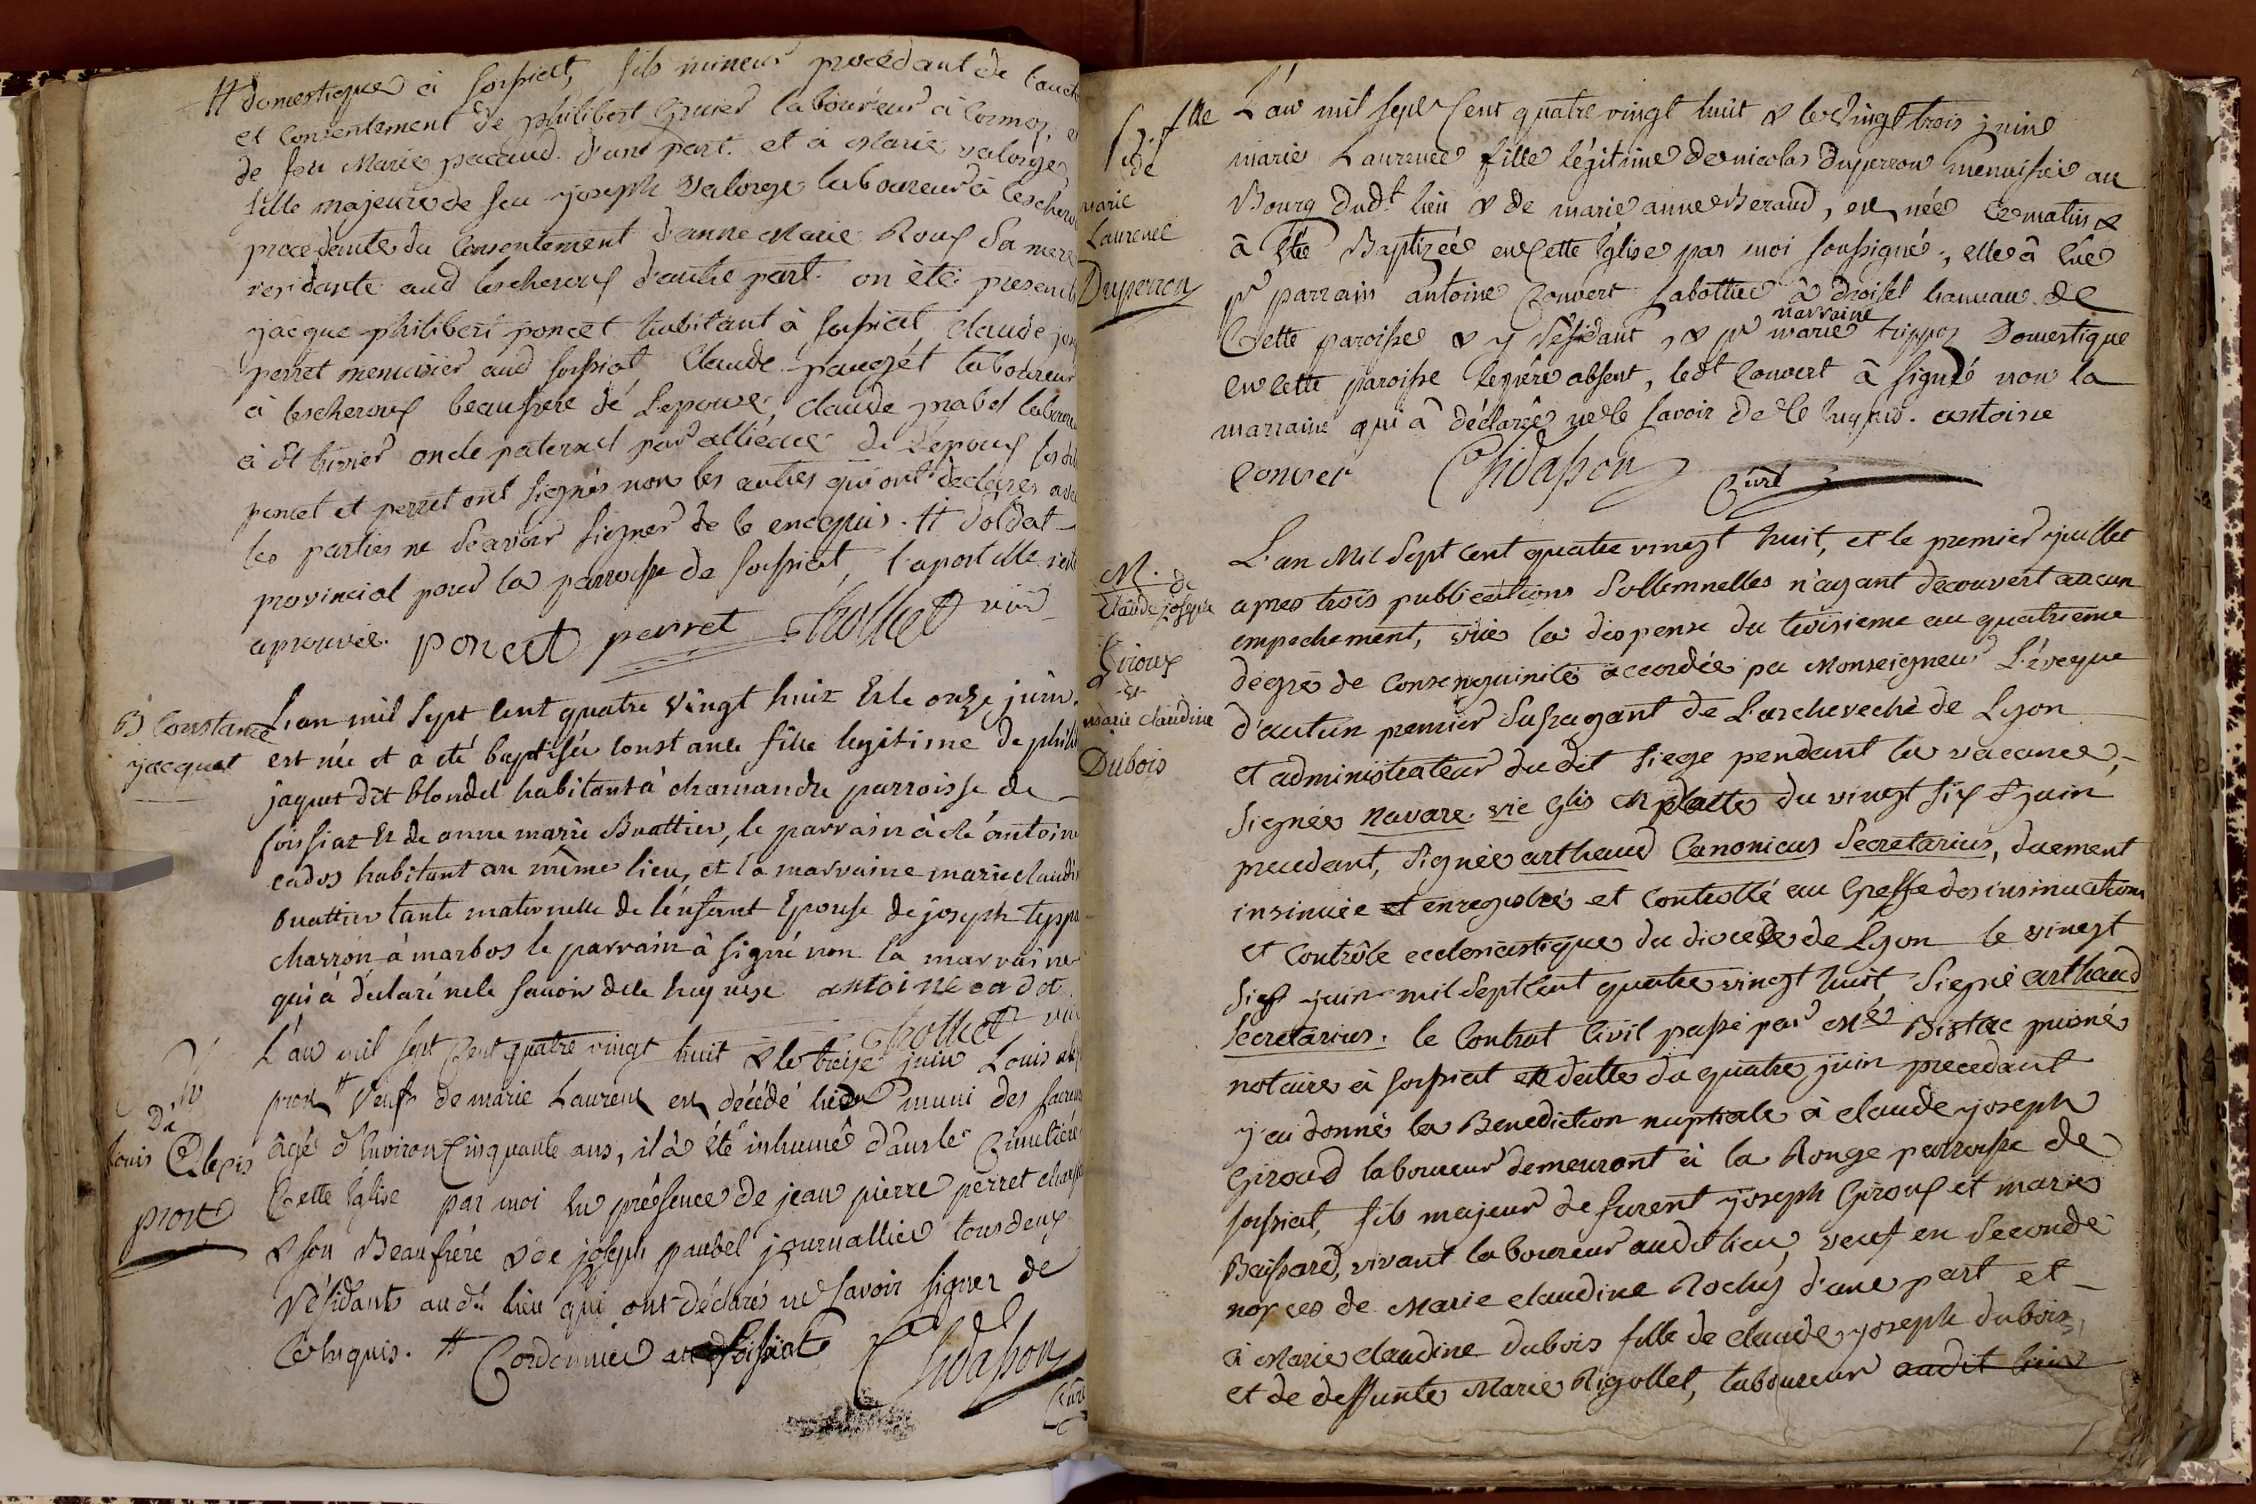 # domestique à foissiat, fils mineur procedant de l'auto
et consentement de philibert Gruier laboureur à Cormoz, et
de feu Marie pacaud d'une part. et à Marie valorge
fille majeure de feu joseph valorge laboureur à lescherou
procedante du consentement d'anne Marie Roux sa mere
residante aud lescheroux d'autre part. on été presents
jacque philibert poncet habitant à foissiat claude jose
perret menuisier aud foissiat Claude pauget laboureur
à lescheroux beaufrere dé L'epouse, claude paubel laboure
à st trivier oncle paternel par alliance de L'epoux les dit
poncet et perret ont signés non les autres qui ont déclarés avec
les parties ne sçavoir signer de ce enequis. # soldat
provincial pour la parroisse de foissiat, l'apostille
aprouvée. poncet perret chollet vic
B Constance
jacquet
L'an mil sept cent quatre vingt huit Et le onze juin
est née et a été baptisée constance fille legitime de phili
jaquet dit blondel habitant à chamandre parroisse de
foissiat Et de anne marie Buattier, le parrain à été antoine
cados habitant au même lieu, et la marraine marie claudi
buattier tante maternelle de l'enfant Epouse de joseph
charron à marbos le parrain à signé non la marraine
qui à declaré ne le savoir de ce huquise antoine cadot
chollet vic
De
Louis Alexis
prost
L'an mil sept Cent quatre vingt huit & le treize juin Louis alexi
prost # veuf de marie Laurent est décédé hier muni des sacrem
âgé d'Environ Cinquante ans, il à été inhumé dans le Cimetiére
Cette Eglise par moi En présence de jean pierre perret
& son Beaufrére & de joseph paubel journallier tous deux
Résidants aud.t lieu qui ont déclaré ne savoir signer de
Ce Enquis. # Cordonnier à foissiat Chidasson
Curé
de
marie
Laurence
Duperron
L'an mil sept Cent quatre vingt huit & le Vingt trois juin
marie Laurence fille légitime de nicolas Duperron menuisier au
Bourg dud.t lieu & de marie anne Beraud, est née Ce matin &
à Eté Baptizée en Cette Eglise par moi soussigné, elle à Eue
p.r parrain antoine Convert sabottier à droisel hameau de
Cette paroisse & y Résidant, & p.r marraine marie trippoz Domestique
en cette paroisse le pére absent, led.t Convert à signé non la
marraine qui à déclarée ne le savoir de Ce Enquis. antoine
Convert Chidasson Curé
M. de
Claude joseph
Giroux
et
marie claudine
Dubois
L'an Mil Sept cent quatre vingt huit, et le premier juillet
apres trois publications sollemnelles n'ayant découvert aucun
empechement, vûe la dispense du troisieme au quatrieme
degré de consenguinité accordée pa Monseigneur L'évêque
d'autun premier sufragant de L'archeveché de Lyon
et administrateur du dit siege pendant la vacance,
signée navare. vic glis du vingt six juin
precedant, signée arthaud Canonicus Secretarius, duement
insinuée et enregistrée et controllé au Greffe des insinuations
et Contrôle ecclesiastique du diocese de Lyon le vingt
six juin mil sept cent quatre vingt huit signé arthaud
secretarius. le contrat civil passé par me puiné
notaire à foissiat en datte du quatre juin precedant
j'ai donné la Benediction nuptiale à claude joseph
Giroud laboureur demeurant à la Ronge parroisse de
foissiat, fils majeur de furent joseph Giroux et marie
Baissard, vivant laboureur audit lieu, veuf en seconde
noces de Marie claudine Rochy d'une part et
à Marie claudine dubois fille de claude joseph dubois
et de deffunte Marie Rigollet, laboureur audit lieu